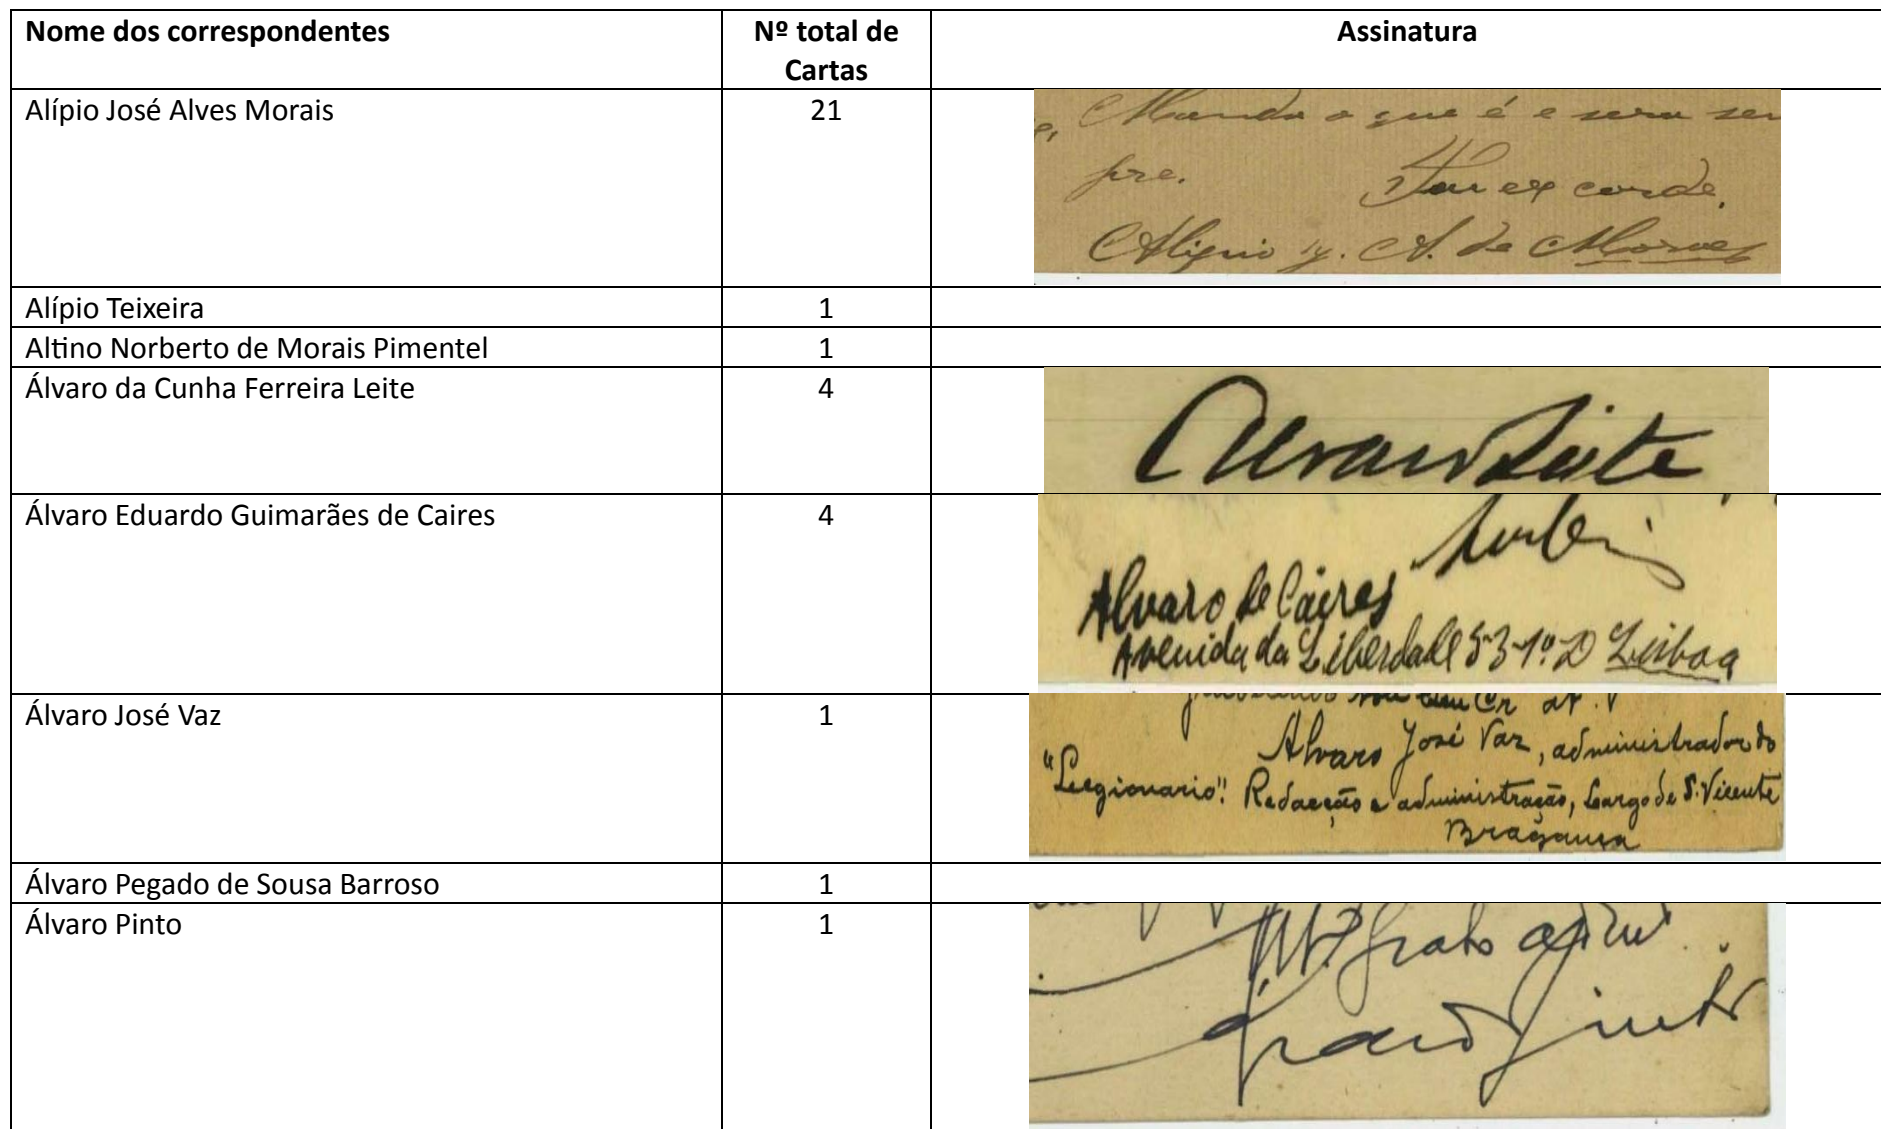 Nome dos correspondentes
Nº total de
Cartas
Assinatura
Alípio José Alves Morais
21
Manda o que é e sera sem
pre.
ex corde.
Alipio J. A. de Moraes
Alípio Teixeira
1
Altino Norberto de Morais Pimentel
1
Álvaro da Cunha Ferreira Leite
4
Alvaro Leite
Álvaro Eduardo Guimarães de Caires
4
Alvaro de Caires
Avenida da Liberdade 53-1º D Lisboa
Álvaro José Vaz
1
Alvaro José Vaz, administrador do
"Legionario". Redacção e administração, Largo de S. Vicente
Bragança
Álvaro Pegado de Sousa Barroso
1
Álvaro Pinto
1
grato
Alvaro Pinto